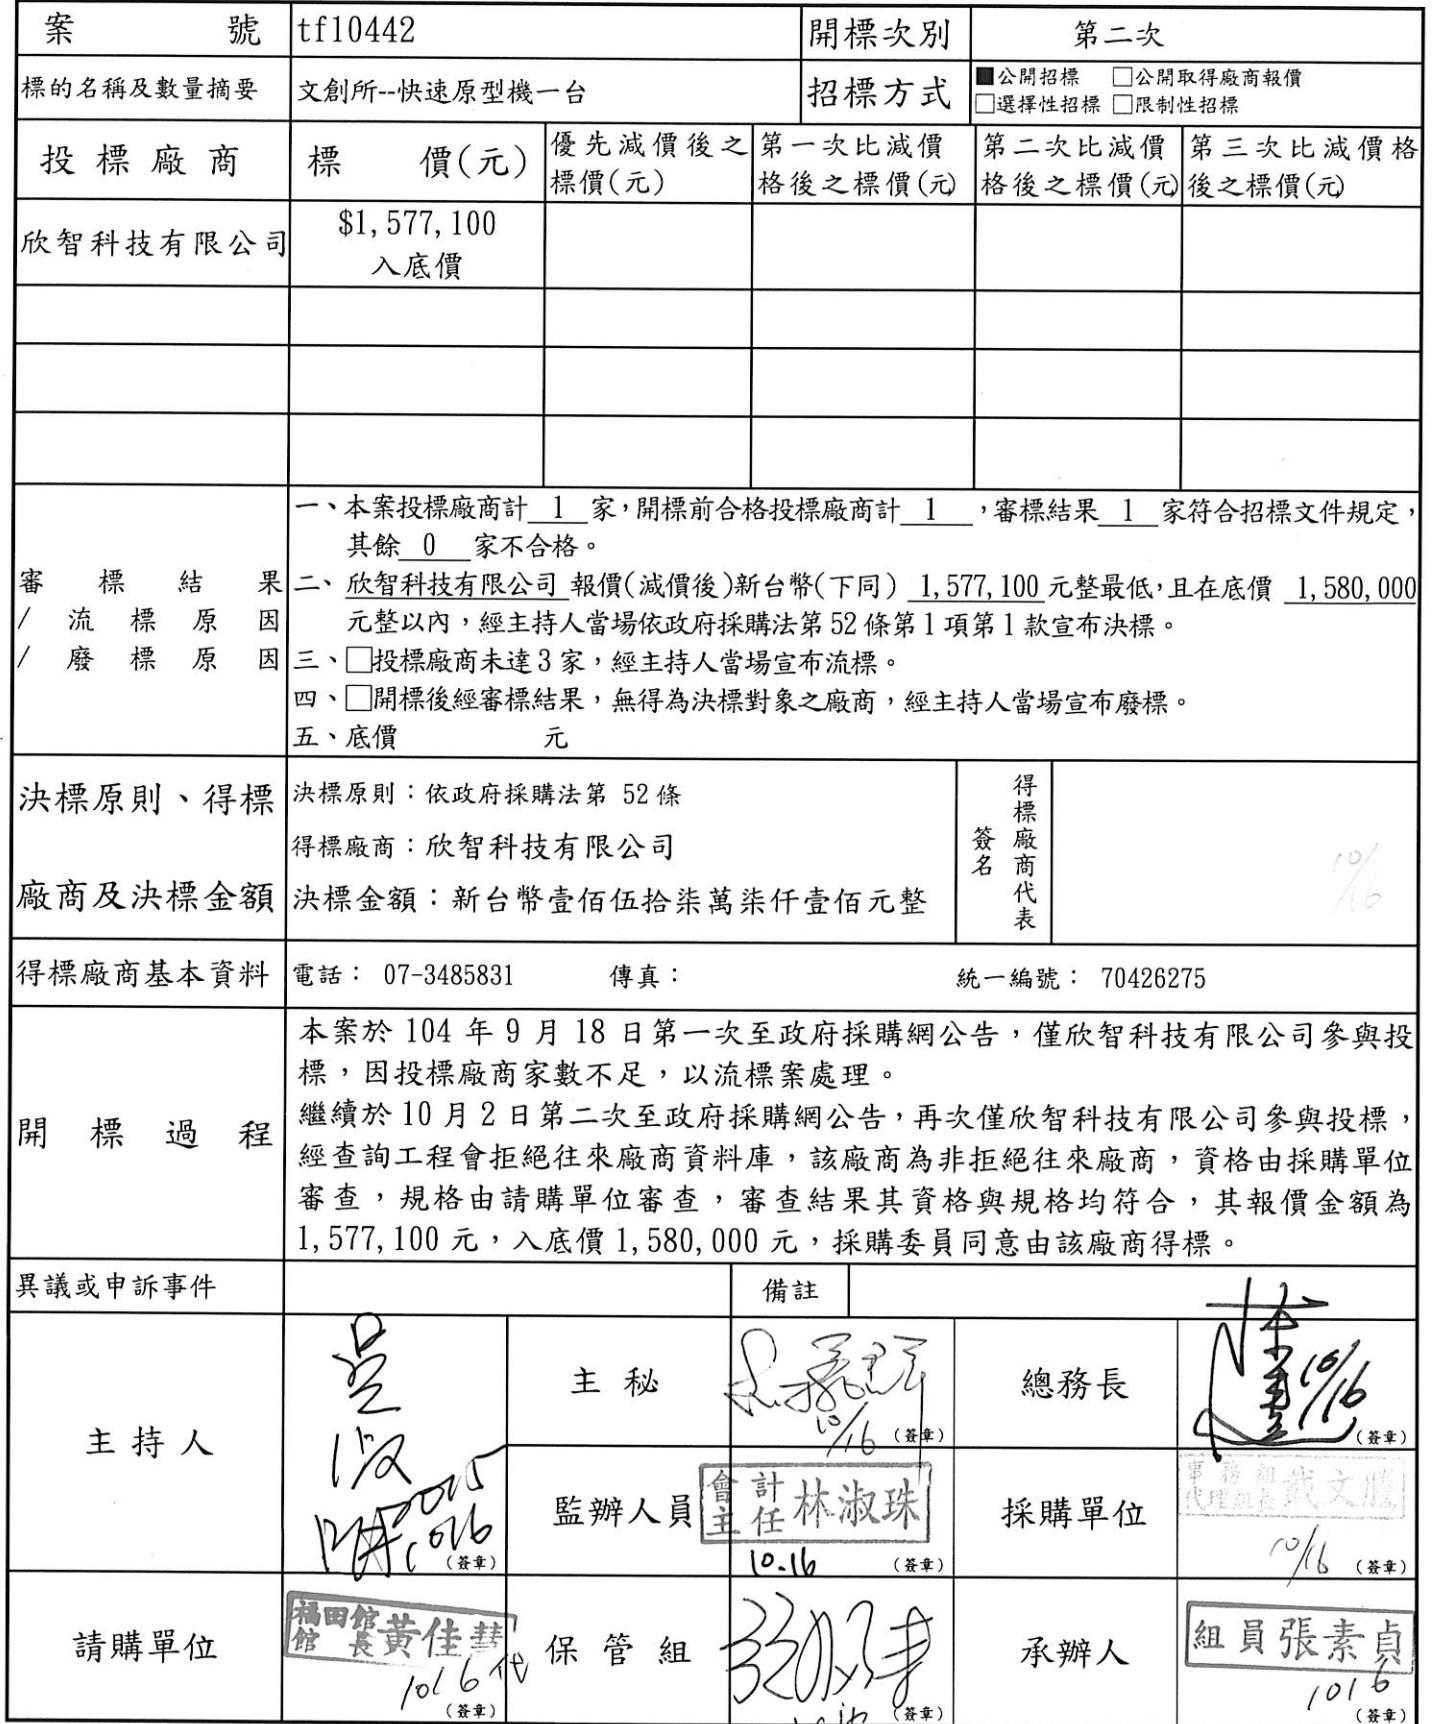 案 號 tf10442 開標次別 第二次
標的名稱及數量摘要 文創所--快速原型機一台 招標方式 ■公開招標 □公開取得廠商報價
□選擇性招標 □限制性招標
投標廠商 標 價(元) 優先減價後之標價(元) 第一次比減價格後之標價(元) 第二次比減價格後之標價(元) 第三次比減價格後之標價(元)
欣智科技有限公司 $1,577,100
入底價
審標結果
/流標原因
/廢標原因
一、本案投標廠商計 1 家,開標前合格投標廠商計 1 ,審標結果 1 家符合招標文件規定,
其餘 0 家不合格。
二、欣智科技有限公司 報價(減價後)新台幣(下同) 1,577,100 元整最低,且在底價 1,580,000
元整以內,經主持人當場依政府採購法第52條第1項第1款宣布決標。
三、□投標廠商未達3家,經主持人當場宣布流標。
四、□開標後經審標結果,無得為決標對象之廠商,經主持人當場宣布廢標。
五、底價 元
決標原則、得標
廠商及決標金額
決標原則:依政府採購法第 52條
得標廠商:欣智科技有限公司
決標金額:新台幣壹佰伍拾柒萬柒仟壹佰元整
得標廠商代表
簽名
10/16
得標廠商基本資料 電話: 07-3485831 傳真: 統一編號: 70426275
開標過程
本案於 104 年 9 月 18 日第一次至政府採購網公告,僅欣智科技有限公司參與投
標,因投標廠商家數不足,以流標案處理。
繼續於10月2日第二次至政府採購網公告,再次僅欣智科技有限公司參與投標,
經查詢工程會拒絕往來廠商資料庫,該廠商為非拒絕往來廠商,資格由採購單位
審查,規格由請購單位審查,審查結果其資格與規格均符合,其報價金額為
1,577,100 元,入底價 1,580,000 元,採購委員同意由該廠商得標。
異議或申訴事件 備註
主持人 (簽章)
主秘 10/16 (簽章)
總務長 10/16 (簽章)
監辦人員 會計主任 林淑珠 10.16 (簽章)
採購單位 事務組代理組長 戴文 10/16 (簽章)
請購單位 福田館館長 黃佳慧 代 1016 (簽章)
保管組 (簽章)
承辦人 組員張素貞 1016 (簽章)